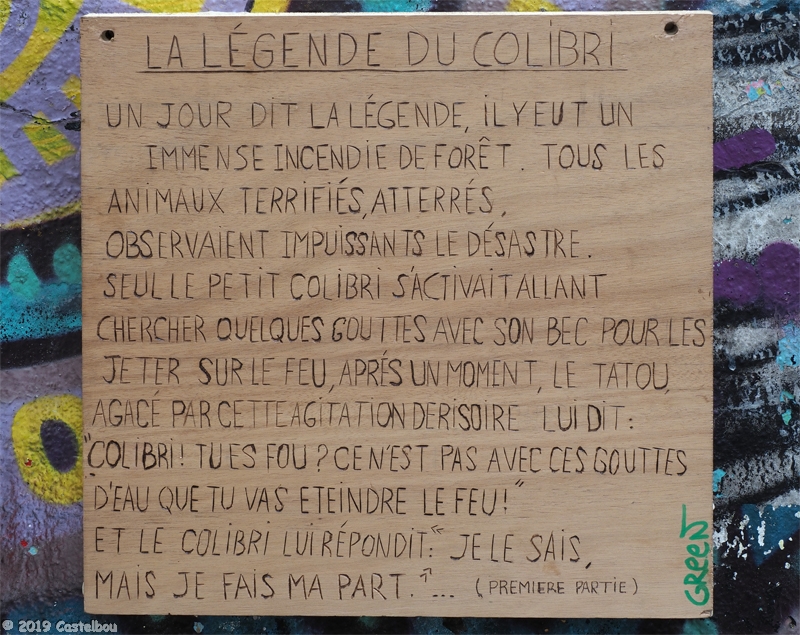 LA LÉGENDE DU COLIBRI
UN JOUR DIT LA LÉGENDE, IL Y EUT UN
IMMENSE INCENDIE DE FORÊT. TOUS LES
ANIMAUX TERRIFIÉS, ATTERRÉS,
OBSERVAIENT IMPUISSANTS LE DÉSASTRE.
SEUL LE PETIT COLIBRI S'ACTIVAIT ALLANT
CHERCHER QUELQUES GOUTTES AVEC SON BEC POUR LES
JETER SUR LE FEU, APRÉS UN MOMENT, LE TATOU,
AGACÉ PAR CETTE AGITATION DERISOIRE LUI DIT:
"COLIBRI! TU ES FOU? CE N'EST PAS AVEC CES GOUTTES
D'EAU QUE TU VAS ETEINDRE LE FEU!"
ET LE COLIBRI LUI RÉPONDIT: "JE LE SAIS,
MAIS JE FAIS MA PART."... (PREMIERE PARTIE)
GREEN
© 2019 Castelbou